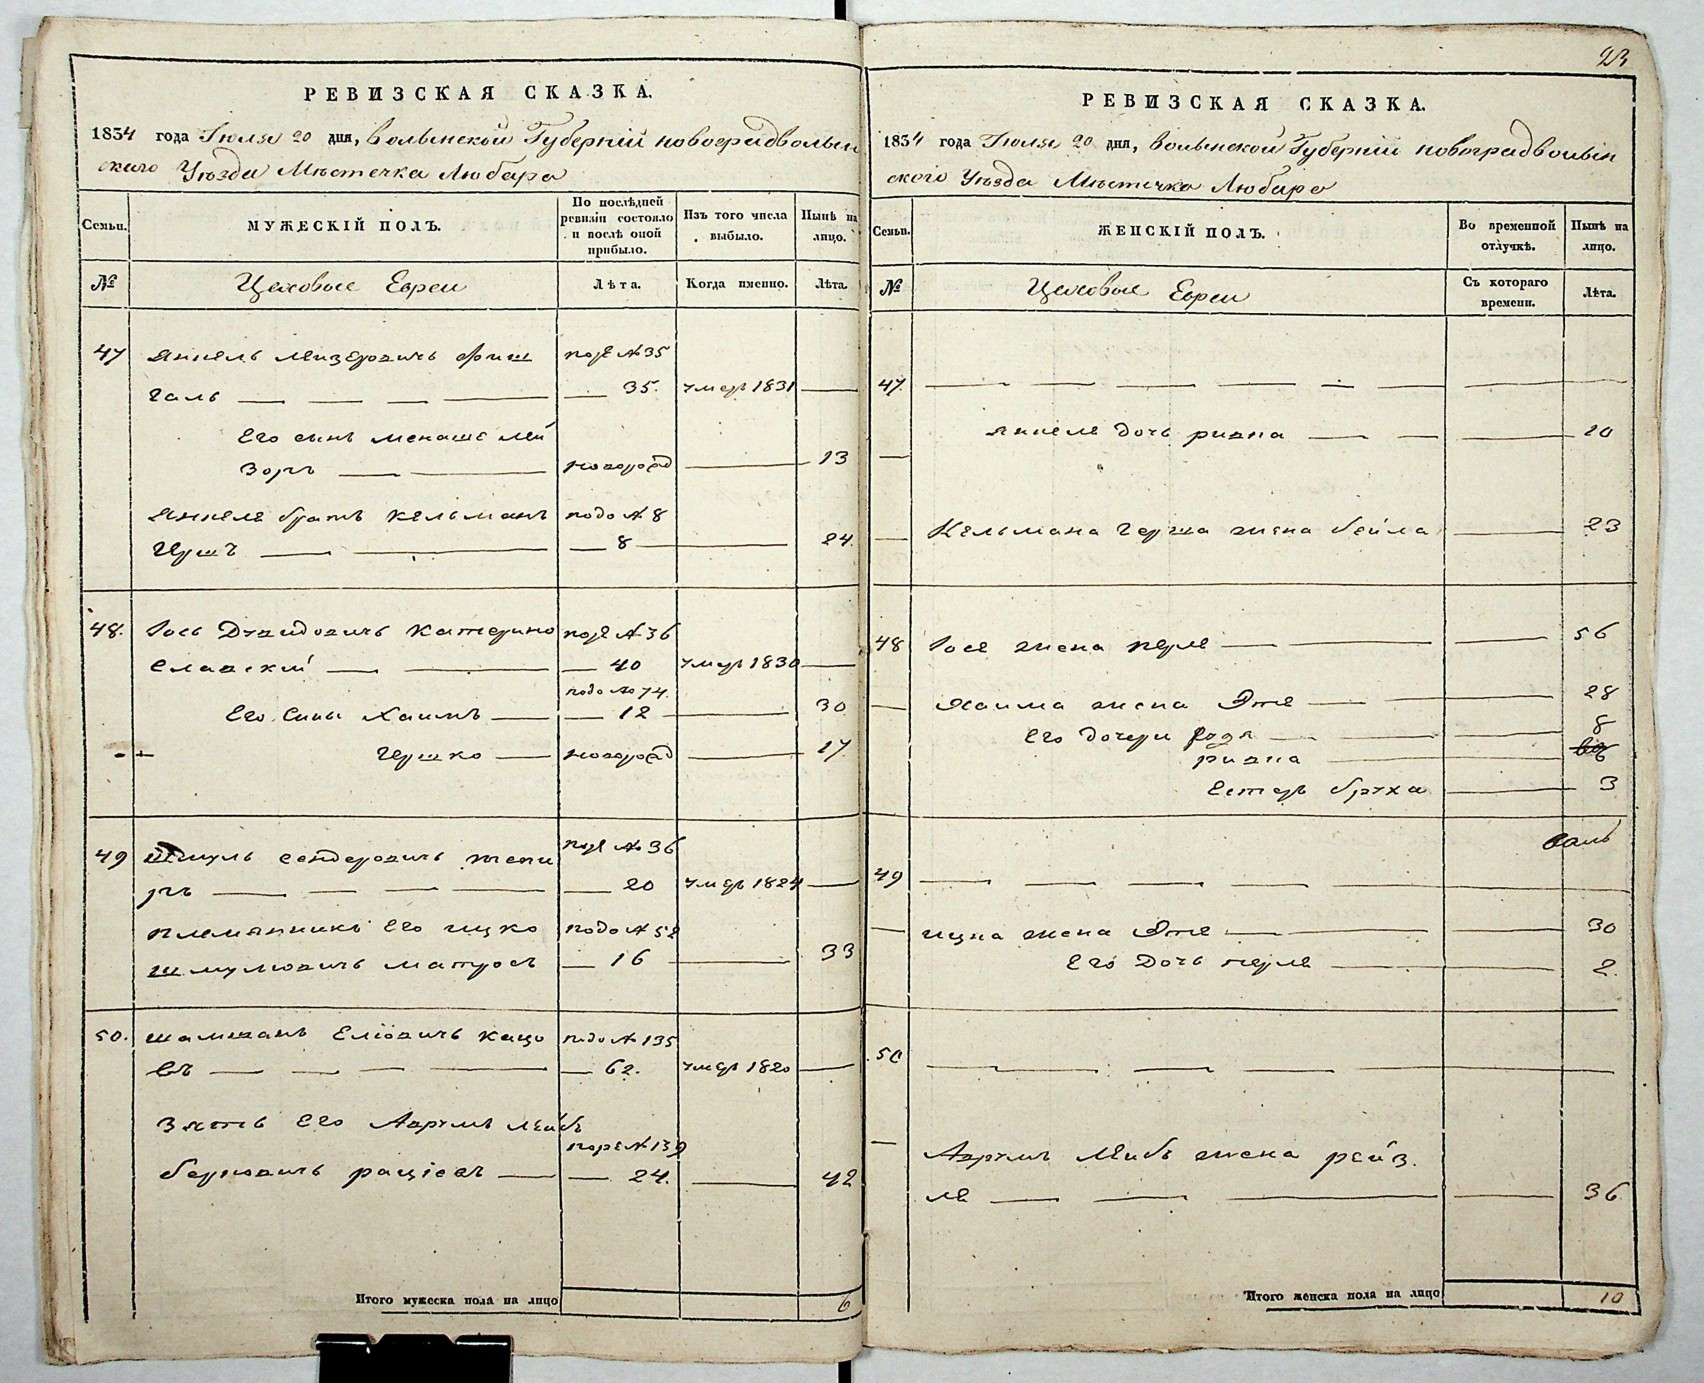 РЕВИЗСКАЯ СКАЗКА.
1834 года Июля 20 дня, Волынской Губерніи новоградволын
скаго Уѣзда Мѣстечка Любара
Семьи.
МУЖЕСКІЙ ПОЛЪ.
По послѣдней
ревизіи состояло
и послѣ оной
прибыло.
Изъ того числа
выбыло.
Нынѣ на
лицо.
№
Цеховые Евреи
Лѣта.
Когда именно.
Лѣта.
47 Янкель Лейзеровичъ Фиш под № 35
галь 35. умеръ 1831
Его сынъ Менаше Лей
Зоръ новорожд 13
Янкеля братъ Кельманъ подо № 8
Гершъ 8 24.
48. Іось Давидовичъ Катерино под № 36
славскій 40 умеръ 1830
подо № 74.
Его Сыны Хаимъ 12 30
Гершко новорожд 17
49 Шмуль Сендеровичъ под № 36
ръ 20 умеръ 1824
племянникъ Его Ицко подо № 52
Шмулювичъ Матросъ 16 33
50. Еліовичъ Кацо подо № 135
въ 62. умеръ 1820
Зять Его Аврумъ Лейбъ
№ 139
Берковичъ 24. 42
Итого мужеска пола на лицо 6
23
РЕВИЗСКАЯ СКАЗКА.
1834 года Июля 20 дня, Волынской Губерніи новоградволын
скаго Уѣзда Мѣстечка Любара
Семьи.
ЖЕНСКІЙ ПОЛЪ.
Во временной
отлучкѣ.
Нынѣ на
лицо.
№
Цеховые Евреи
Съ котораго
времени.
Лѣта.
47.
Янкеля дочь ривка 20
Кельмана герша жена бейла 23
48 Іося жена перля 56
Хаима жена Этя 28
Его дочери 8
ривка
Естеръ бруха 3
49
Ицка жена Этя 30
Его Дочь перля 2.
50
Аврумъ Лейбъ жена рейз.
ля 36
Итого женска пола на лицо 10